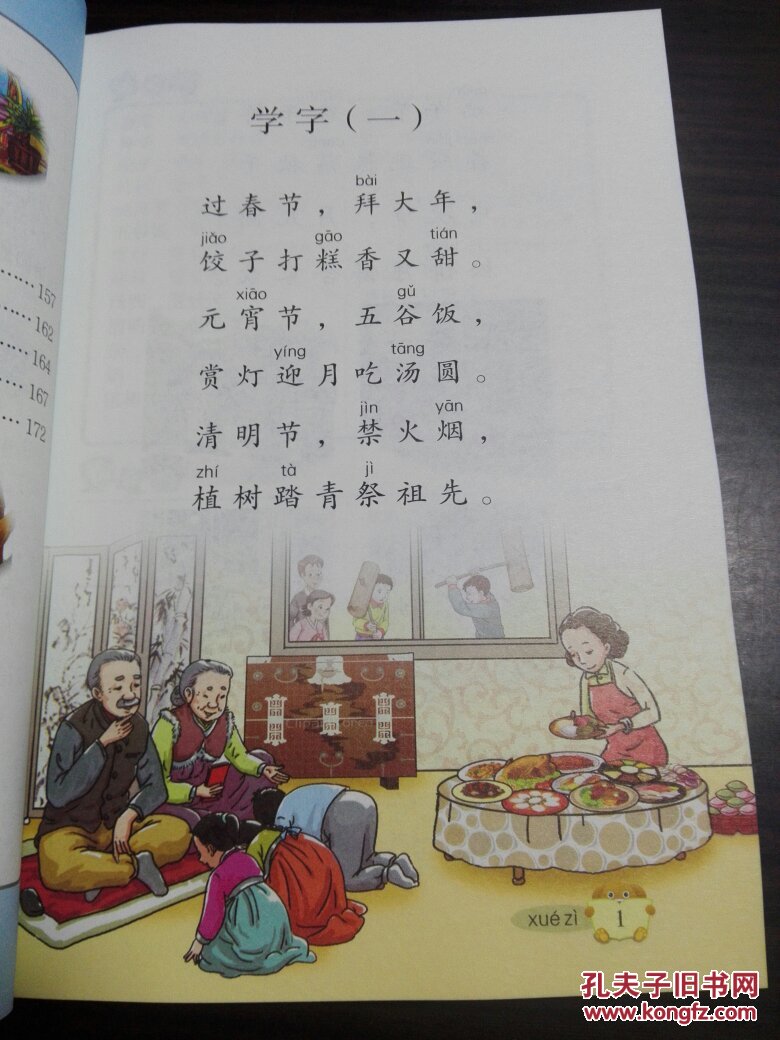 157
162
164
167
172
学字(一)
bài
过春节，拜大年，
jiǎo gāo tián
饺子打糕香又甜。
xiāo gǔ
元宵节，五谷饭，
yíng tāng
赏灯迎月吃汤圆。
jìn yān
清明节，禁火烟，
zhí tà jì
植树踏青祭祖先。
xué zì
1
孔夫子旧书网
www.kongfz.com